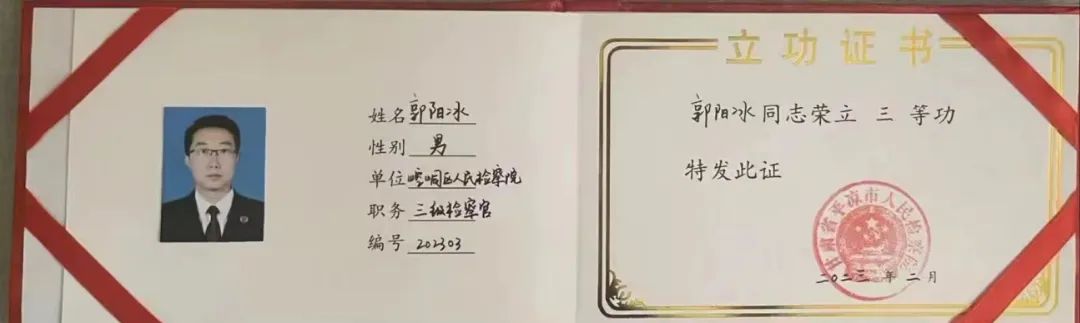 姓名 郭阳冰
性别 男
单位 崆峒区人民检察院
职务 三级检察官
编号 202303
立功证书
郭阳冰同志荣立 三 等功
特发此证
甘肃省平凉市人民检察院
二〇二三 年 二 月